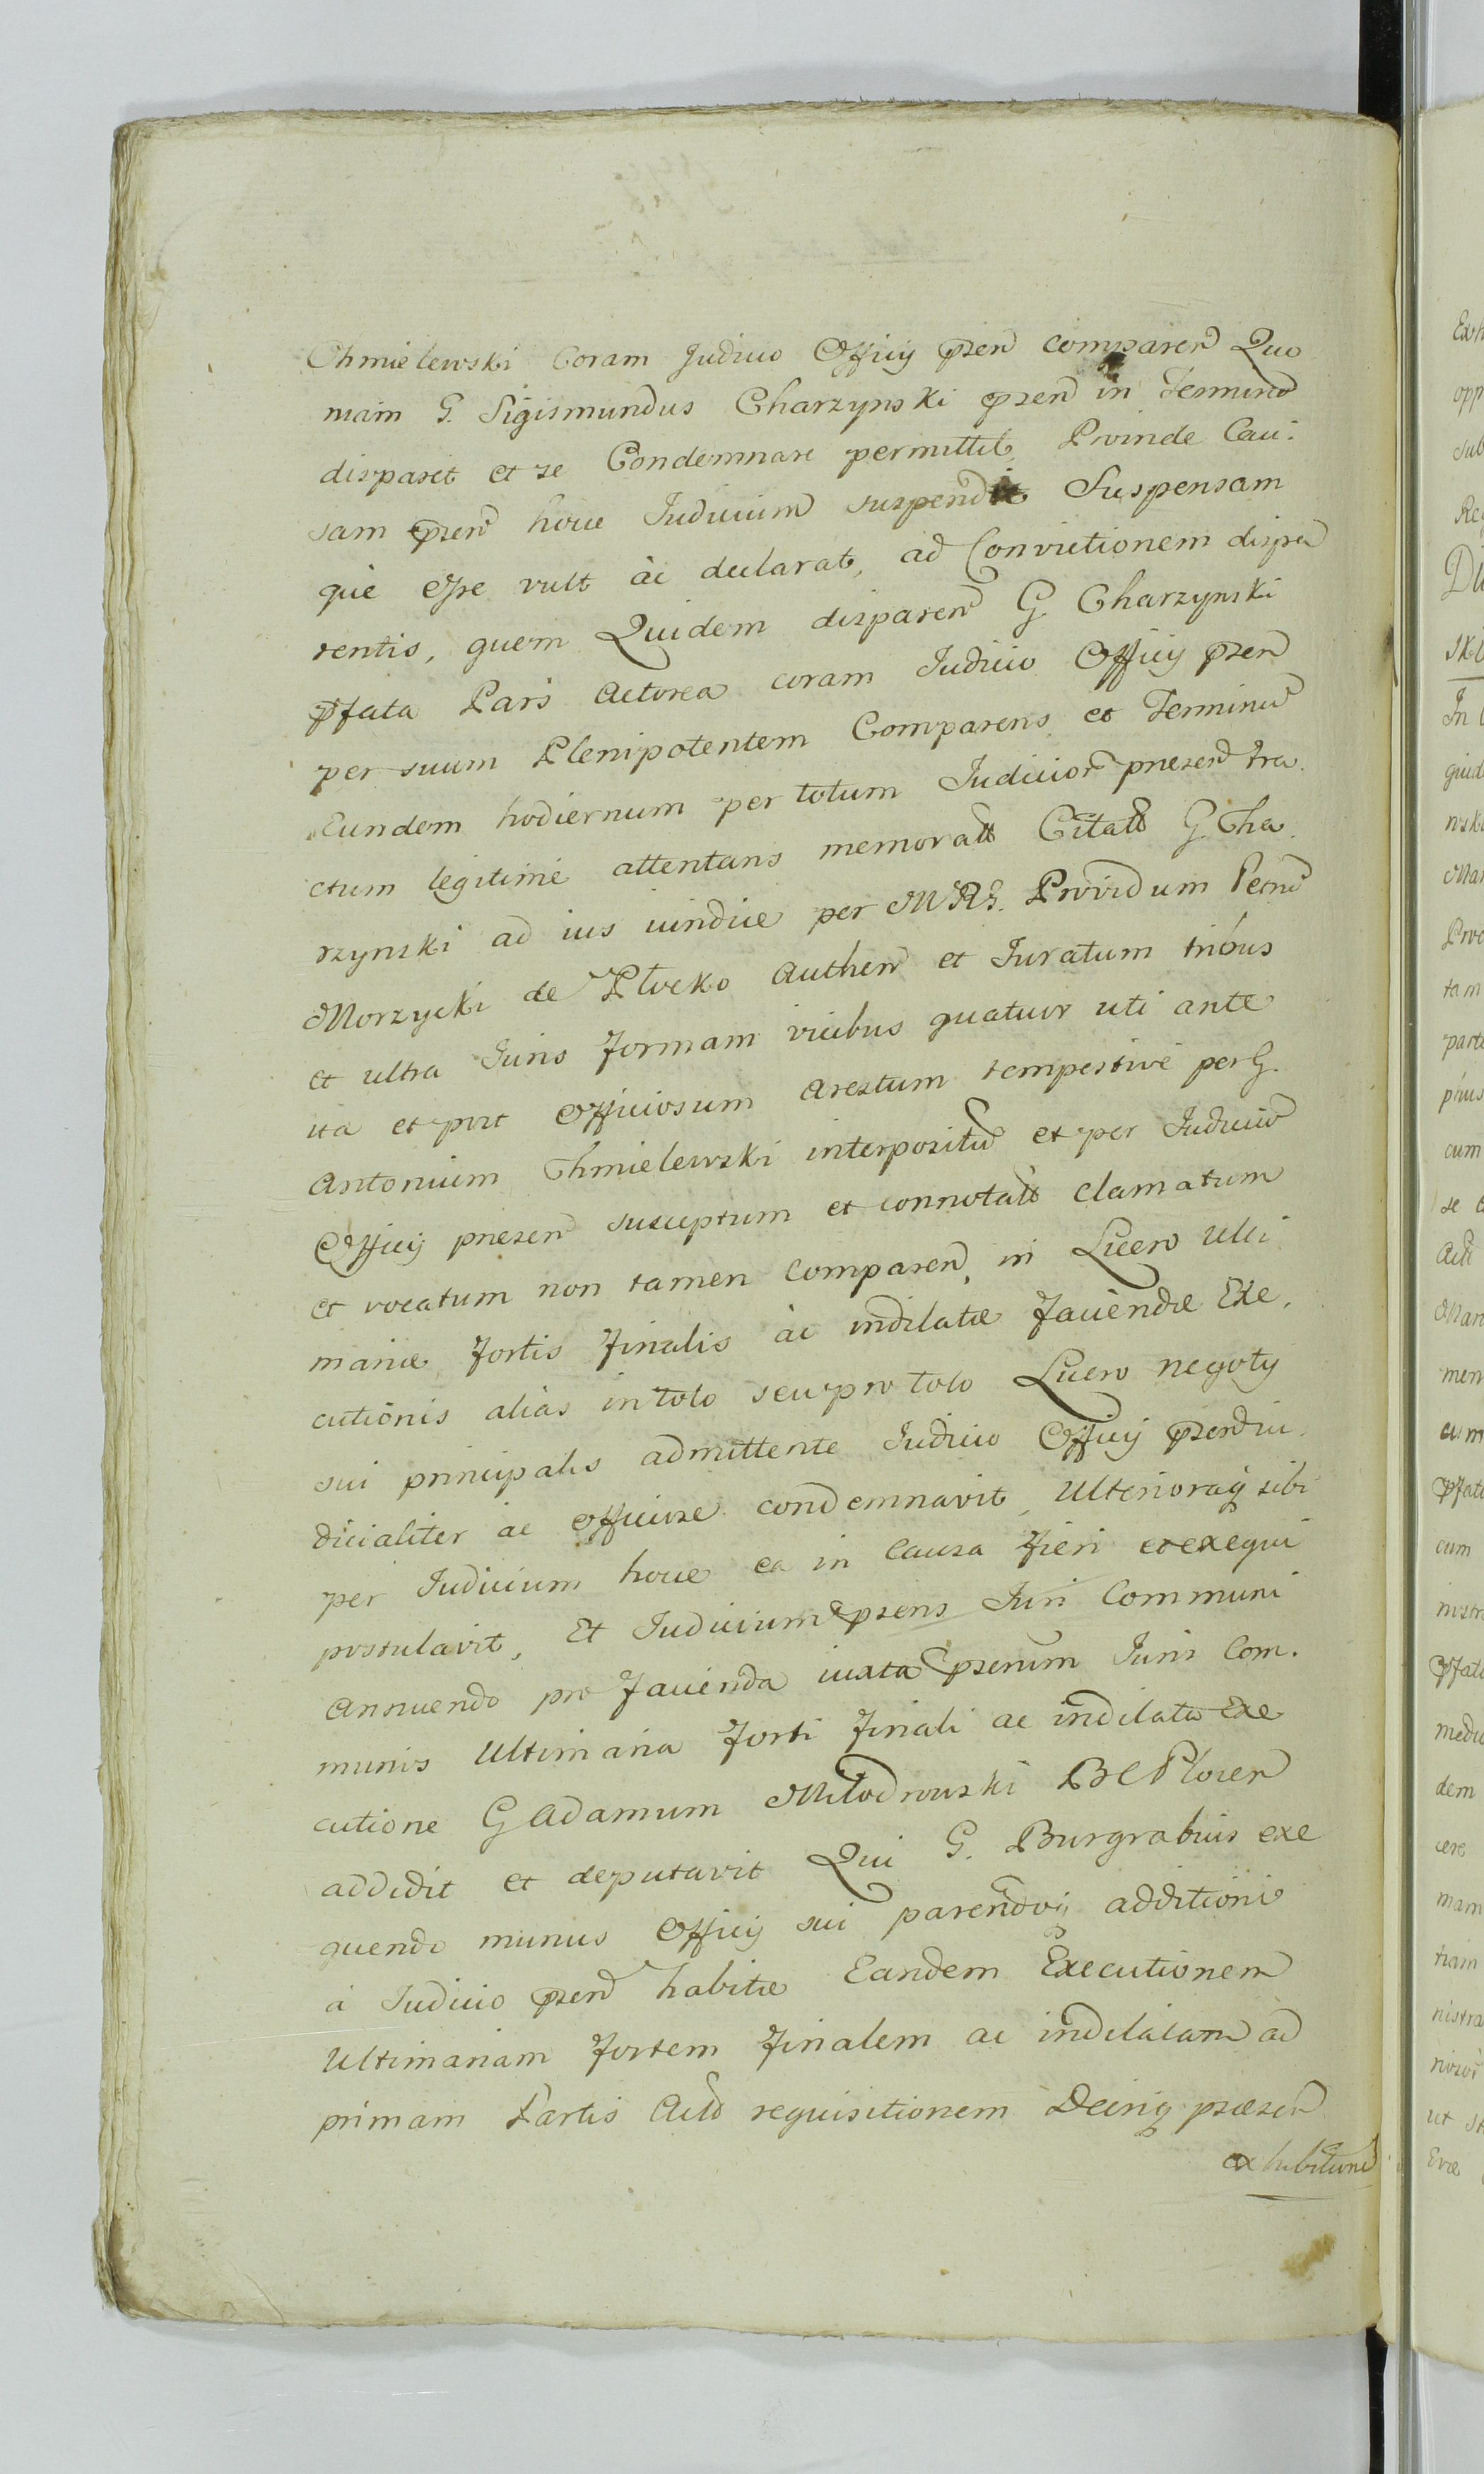 Chmielewski Coram Judicio Officij pzen comparen Quo
niam G. Sigismundus Charzynski pzen in Termino
disparet et se Condemnare permittit, Proinde Cau.
sam pzen hocce Judicium suspendit Suspensam
què esse vult ac declarat, ad Convictionem dispa
rentis, quem Quidem disparen G. Charzynski
pfata Pars Actorea coram Judicio Officij pzen
per suum Plenipotentem Comparens et Terminũ
Eundem hodiernum per totum Judicior presen tra.
ctum legitimè attentans memorat Citat G. Cha.
rzynski ad ius iudice per MRG. Providum Petrũ
Morzycki de Plocko Authen et Juratum tribus
et ultra Juris formam vicibus quatuor uti ante
ita et post Officiosum arestum tempestivè per G.
Antonium Chmielewski interpositũ et per Judiciũ
Officij presen susceptum et connotat clamatum
et vocatum non tamen comparen, in Lucro Ulti
mariæ, fortis finalis ac indilatæ faciendæ Exe.
cutionis alias in toto seu pro toto Lucro negotij
sui principalis admittente Judicio Officij pzen Ju.
dicialiter ac officiose condemnavit, Ulterioraq sibi
per Judicium hocce ea in Causa fieri et exequi
postulavit, Et Judicium pzens Juri Communi
annuendo pro facienda iuxta pzerum Juris Com.
munis Ultimaria forti finali ac indilata Exe
cutione G Adamum Młodrowski BC Plocen
addidit et deputavit Qui G. Burgrabius exe
quendo munus Officij sui parendoq additioni
à Judicio pzen habitæ Eandem Executionem
Ultimariam fortem finalem ac indilatam ad
primam Partis Act requisitionem Deinq præsen
exhibitione